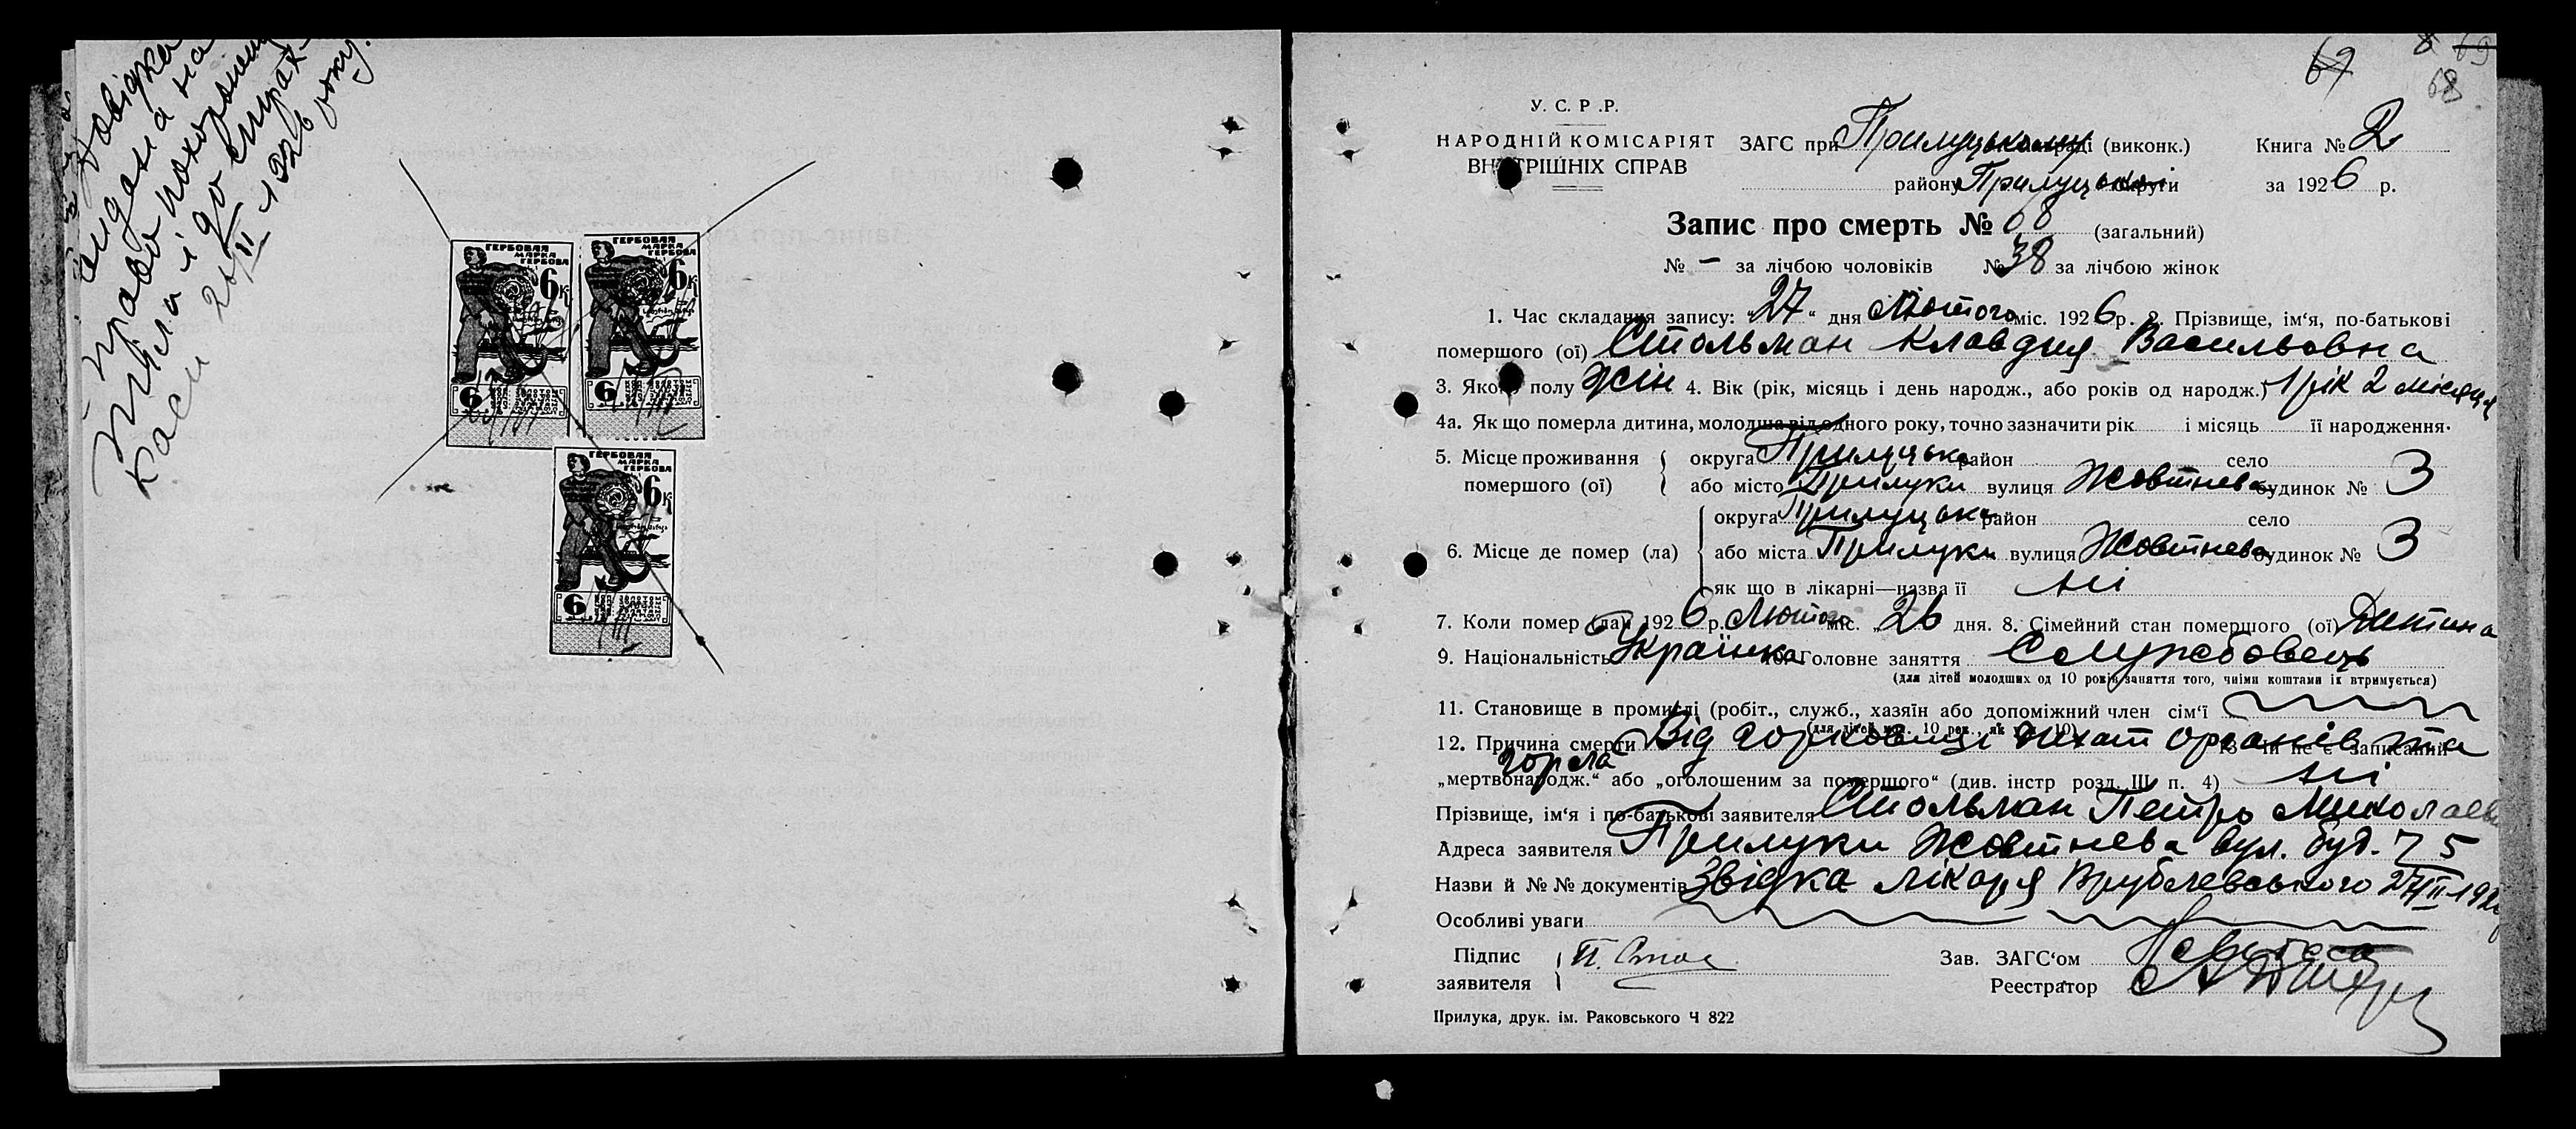 Довідка
видана на
право похорон
тіла і до страх
каси 26/II 1926 року.
ГЕРБОВАЯ
МАРКА
ГЕРБОВА
6к
6
ГЕРБОВАЯ
МАРКА
ГЕРБОВА
6к
6
ГЕРБОВАЯ
МАРКА
ГЕРБОВА
6к
6
67 69
68
У. С. Р .Р.
НАРОДНІЙ КОМІСАРІЯТ
ВНУТРІШНІХ СПРАВ
ЗАГС при Прилуцькому (виконк.) Книга № 2
району Прилуцької округи за 1926 р.
Запис про смерть № 68 (загальний)
№ – за лічбою чоловіків № 38 за лічбою жінок
1. Час складання запису: „27“ дня Лютого міс. 1926 р. 2. Прізвище, ім‘я, по-батькові
помершого (ої) Стольман Клавдия Васильовна
3. Якого полу жін 4. Вік (рік, місяць і день народж., або років од народж.) 1 рік 2 місяця
4а. Як що померла дитина, молодша від одного року, точно зазначити рік і місяць її народження.
5. Місце проживання округа Прилуцька район село
помершого (ої) або місто Прилуки вулиця Жовтнева будинок № 3
округа Прилуцька район село
6. Місце де помер (ла) або міста Прилуки вулиця Жовтнева будинок № 3
як що в лікарні—назва її ні
7. Коли помер (ла) 1926 р. Лютого міс. „26 дня. 8. Сімейний стан помершого (ої) Дитина
9. Національність Українка 10. Головне заняття Службовець
(для дітей молодших од 10 років заняття того, чиїми коштами їх втримується)
11. Становище в промислі (робіт., служб., хазяїн або допоміжний член сім‘ї
(для дітей мол. 10 рок., як у п. 10)
12. Причина смерти Від горловиці дихат органів та 13. Чи не є записаний
горла
„мертвонародж.“ або „оголошеним за помершого“ (див. інстр розд. III п. 4) ні
Прізвище, ім‘я і по-батькові заявителя Стольман Петро Миколаев
Адреса заявителя Прилуки Жовтнева вул. буд. 75
Назви й №№ документів Звідка лікаря Врублевського 27/II-192
Особливі уваги
Підпис
заявителя П. Стол
Зав. ЗАГС‘ом
Реестратор
Прилука, друк. ім. Раковського Ч 822